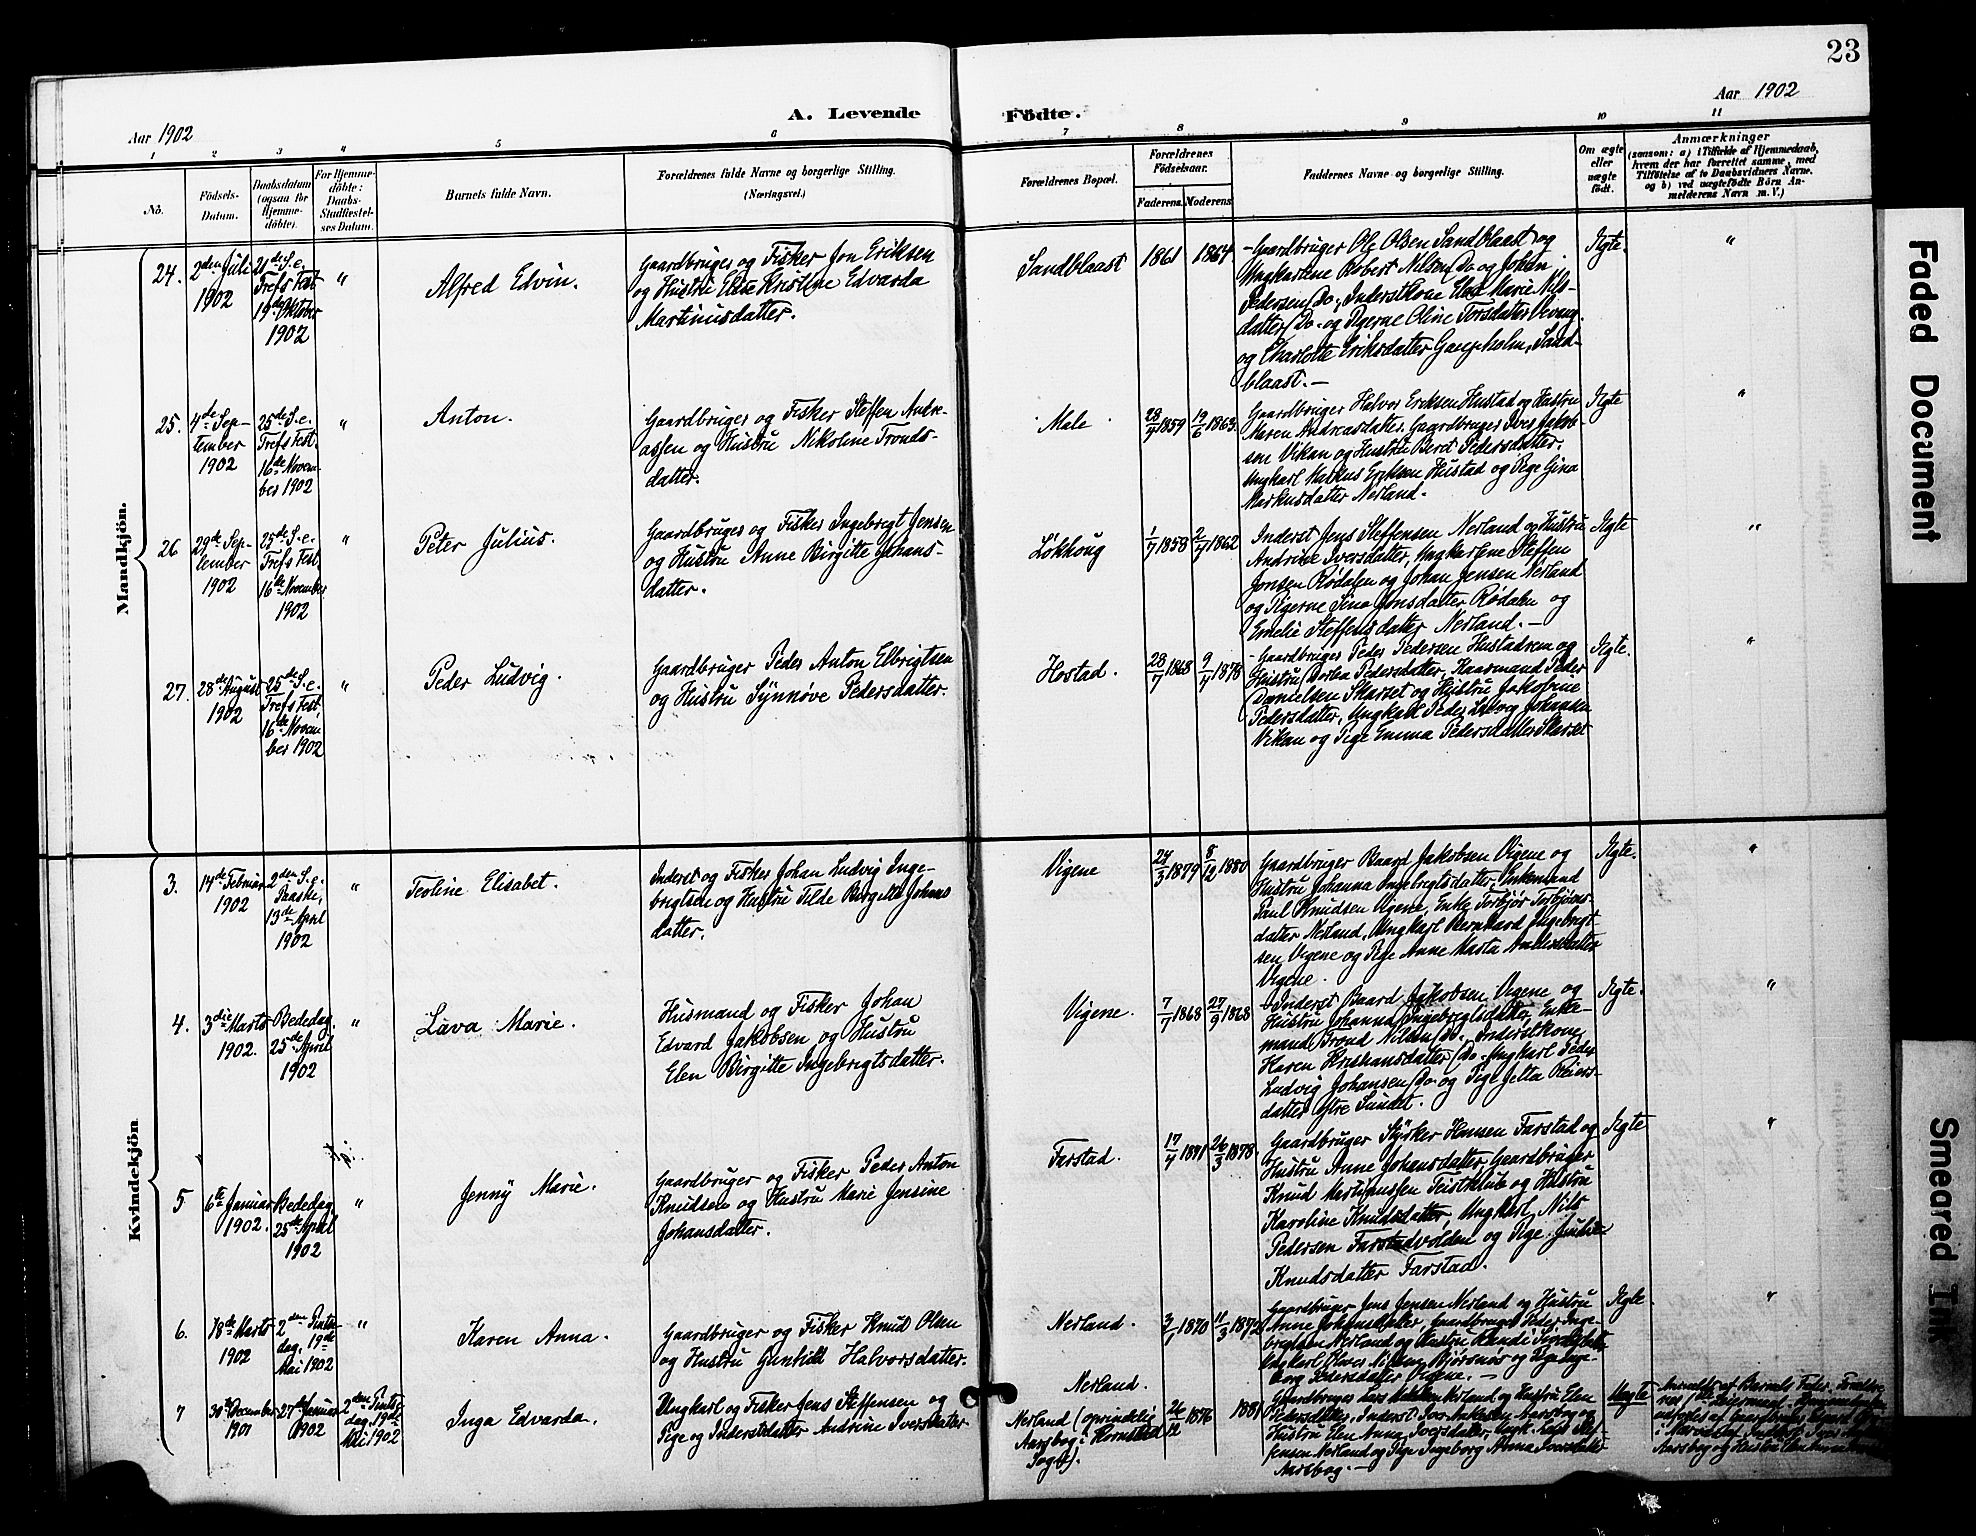 23
Aar 1902
A. Levende Födte.
Aar 1902
1 2 3 4 5 6 7 8 9 10 11
No.
Födsels-
Datum.
Daabsdatum
(ogsaa for
Hjemme-
döbte).
For Hjemme-
döbte:
Daabs-
Stadfæstel-
ses Datum.
Barnets fulde Navn.
Forældrenes fulde Navne og borgerlige Stilling.
(Næringsvei.)
Forældrenes Bopæl.
Forældrenes
Fødselsaar.
Faderens. Moderens.
Faddernes Navne og borgerlige Stilling.
Om ægte
eller
uægte
födt.
Anmærkninger
(saasom: a) i Tilfælde af Hjemmedaab,
hvem der har forrettet samme, med
Tilföielse af to Daabsvidners Navne,
og b) ved uægtefödte Börn An-
melderens Navn m. V.)
Mandkjön.
24.
2den Juli
1902
21de S. e.
Trefs Fest
19de Oktober
1902
"
Alfred Edvin.
Gaardbruger og Fisker Jon Eriksen
og Hustru Kristine Edvarda
Martinusdatter.
Sandblaast
1861
1864
Gaardbruger Ole Olsen Sandblaast og
Ungkarlene Robert Nilsen Do og Johan
Pedersen Do, Inderstkone Marie Nils-
datter Do. og Pigerne Oline Torsdatter
og Charlotte Eriksdatter Gaupholm, Sand-
blaast.
Ægte.
"
25.
4de Sep-
tember
1902
25de S. e.
Trefs Fest.
16de Novem-
ber 1902
"
Anton.
Gaardbruger og Fisker Steffen Andre-
assen og Hustru Nikoline Tronds-
datter.
Male
28/7 1859
19/6 1863.
Gaardbruger Halvor Eriksen Hustad og Hustru
Maren Andreasdatter, Gaardbruger Iver Jakob-
sen Vikan og Hustru Berit Pedersdatter,
Ungkarl Markus Eriksen Hustad og Pige Gina
Markusdatter Nerland.
Ægte
"
26
29de Sep-
tember
1902
25de S. e.
Trefs Fest,
16de November
1902
"
Peter Julius.
Gaardbruger og Fisker Ingebrigt Jensen
og Hustru Anne Birgitte Johans-
datter.
Løkhoug
1/7 1858
2/7 1862
Inderst Jens Steffensen Nerland og Hustru
Andrine Iversdatter, Ungkarlene Steffen
Jonsen Rødalen og Johan Jensen Nerland
og Pigerne Sina Jonsdatter Rødalen og
Emelie Steffensdatter Nerland.
Ægte
"
27.
28de August
1902
25de S. e.
Trefs Fest
16de Novem-
ber 1902
"
Peder Ludvig.
Gaardbruger Peder Anton Elbrigtsen
og Hustru Synnøve Pedersdatter.
Hostad.
28/7 1868
9/7 1878
Gaardbruger Peder Pedersen Hustadnæs og
Hustru Dortea Pedersdatter, Kaarmand Peder
Danielsen Skarset og Hustru Jakobine
Pedersdatter, Ungkarl Peder Ludvig Johansen
Vikan og Pige Emma Pedersdatter Skarset
Ægte.
"
Kvindekjön
3.
14de Februar
1902
2den S. e.
Paaske,
13de April
1902
"
Teoline Elisabet.
Inderst og Fisker Johan Ludvig Inge-
brigtsen og Hustru Tilde Birgitte Johans
datter.
Vigene
24/3 1879
8/12 1880
Gaardbruger Baard Jakobsen Vigene og
Hustru Johanna Ingebrigtsdatter, Enkemand
Paul Knudsen Vigene, Enke Torbjør Torbjørns-
datter Nerland, Ungkarl Bernhard Ingebrigt-
sen Vigene og Pige Anne Marta Andersdatter
Vigene.
Ægte.
"
4.
3die Marts
1902.
Bededag,
25de April
1902
"
Lava Marie.
Husmand og Fisker Johan
Edvard Jakobsen og Hustru
Elen Birgitte Ingebrigtsdatter.
Vigene.
7/7 1868
27/9 1868
Inderst Baard Jakobsen Vigene og
Hustru Johanna Ingebrigtsdatter, Enke-
mand Trond Nilsen Do, Inderstkone
Karen Kristiansdatter Do. Ungkarl Peder
Ludvig Johansen Do og Pige Jetta Reiers-
datter Ytre Sundet.
Ægte.
"
5
6te Januar
1902.
Bededag
25de April
1902
"
Jenny Marie.
Gaardbruger og Fisker Peder Anton
Knudsen og Hustru Marie Jensine
Johansdatter.
Farstad.
17/7 1871
26/3 1878
Gaardbruger Styrker Hansen Farstad og
Hustru Anne Johansdatter, Gaardbruger
Knud Martinussen Teistklub og Hustru
Karoline Knudsdatter, Ungkarl Nils
Pedersen Farstadvolden og Pige
Knudsdatter Farstad.
Ægte
"
6.
18de Marts
1902
2den Pintse-
dag, 19de
Mai 1902
"
Karen Anna.
Gaardbruger og Fisker Knud Olsen
og Hustru Gunhild Halvorsdatter.
Nerland.
3/1 1870
11/3 1872
Gaardbruger Jens Jensen Nerland og Hustru
Anne Johansdatter, Gaardbruger Peder Inge-
brigtsen Nerland og Hustru Randi
Ungkarl Bjørsnøs og Pige Inge-
borg Pedersdatter Vigene.
Ægte.
"
7
30te December
1901
27de Januar
1902
2den Pintse
dag, 19de
Mai 1902
Inga Edvarda.
Ungkarl og Fisker Jens Steffensen og
Pige og Inderstdatter Andrine Iversdatter
Nerland.
Nerland (oprindelig
Aarsbog i Kornstad
Sogn).
26/12 1876
1881
Gaardbruger Lars Nerland og Hustru Elen
Pedersdatter, Inderst Iver Aarsbog og
Hustru Elen Anna Iversdatter, Ungk. Lars Stef-
fensen Nerland og Pige Ingeborg Anna Iversdatter
Aarsbog.
Uægte
Anmeldt af Barnets Fader.
Faded Document
Smeared Ink